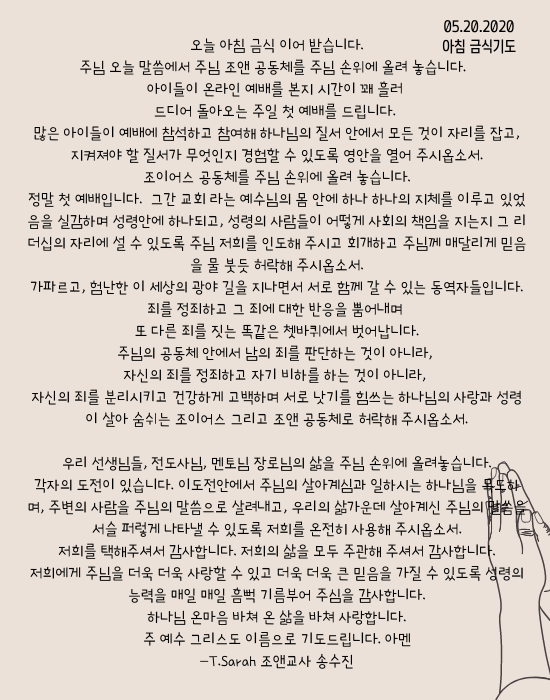 05.20.2020
아침 금식기도
오늘 아침 금식 이어 받습니다.
주님 오늘 말씀에서 주님 조앤 공동체를 주님 손위에 올려 놓습니다.
아이들이 온라인 예배를 본지 시간이 꽤 흘러
드디어 돌아오는 주일 첫 예배를 드립니다.
많은 아이들이 예배에 참석하고 참여해 하나님의 질서 안에서 모든 것이 자리를 잡고,
지켜져야 할 질서가 무엇인지 경험할 수 있도록 영안을 열어 주시옵소서.
조이어스 공동체를 주님 손위에 올려 놓습니다.
정말 첫 예배입니다. 그간 교회 라는 예수님의 몸 안에 하나 하나의 지체를 이루고 있었
음을 실감하며 성령안에 하나되고, 성령의 사람들이 어떻게 사회의 책임을 지는지 그 리
더십의 자리에 설 수 있도록 주님 저희를 인도해 주시고 회개하고 주님께 매달리게 믿음
을 물 붓듯 허락해 주시옵소서.
가파르고, 험난한 이 세상의 광야 길을 지나면서 서로 함께 갈 수 있는 동역자들입니다.
죄를 정죄하고 그 죄에 대한 반응을 뿜어내며
또 다른 죄를 짓는 똑같은 쳇바퀴에서 벗어납니다.
주님의 공동체 안에서 남의 죄를 판단하는 것이 아니라,
자신의 죄를 정죄하고 자기 비하를 하는 것이 아니라,
자신의 죄를 분리시키고 건강하게 고백하며 서로 낫기를 힘쓰는 하나님의 사랑과 성령
이 살아 숨쉬는 조이어스 그리고 조앤 공동체로 허락해 주시옵소서.
우리 선생님들, 전도사님, 멘토님 장로님의 삶을 주님 손위에 올려놓습니다.
각자의 도전이 있습니다. 이도전안에서 주님의 살아계심과 일하시는 하나님을 목도하
며, 주변의 사람을 주님의 말씀으로 살려내고, 우리의 삶가운데 살아계신 주님의 말씀을
서슬 퍼렇게 나타낼 수 있도록 저희를 온전히 사용해 주시옵소서.
저희를 택해주셔서 감사합니다. 저희의 삶을 모두 주관해 주셔서 감사합니다.
저희에게 주님을 더욱 더욱 사랑할 수 있고 더욱 더욱 큰 믿음을 가질 수 있도록 성령의
능력을 매일 매일 흠뻑 기름부어 주심을 감사합니다.
하나님 온마음 바쳐 온 삶을 바쳐 사랑합니다.
주 예수 그리스도 이름으로 기도드립니다. 아멘
-T.Sarah 조앤교사 송수진